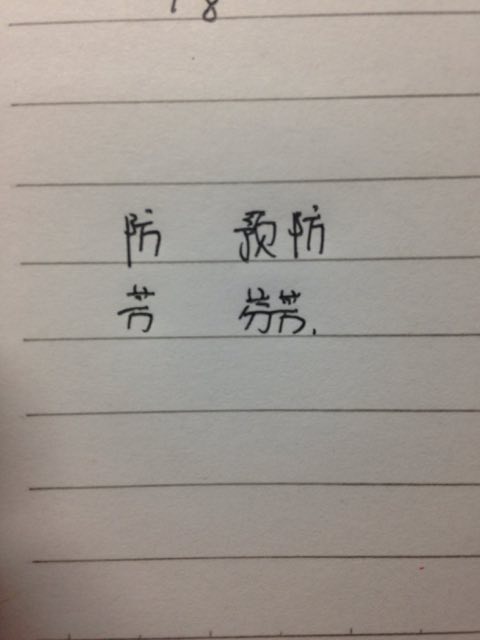 防 预防
芳 芬芳.